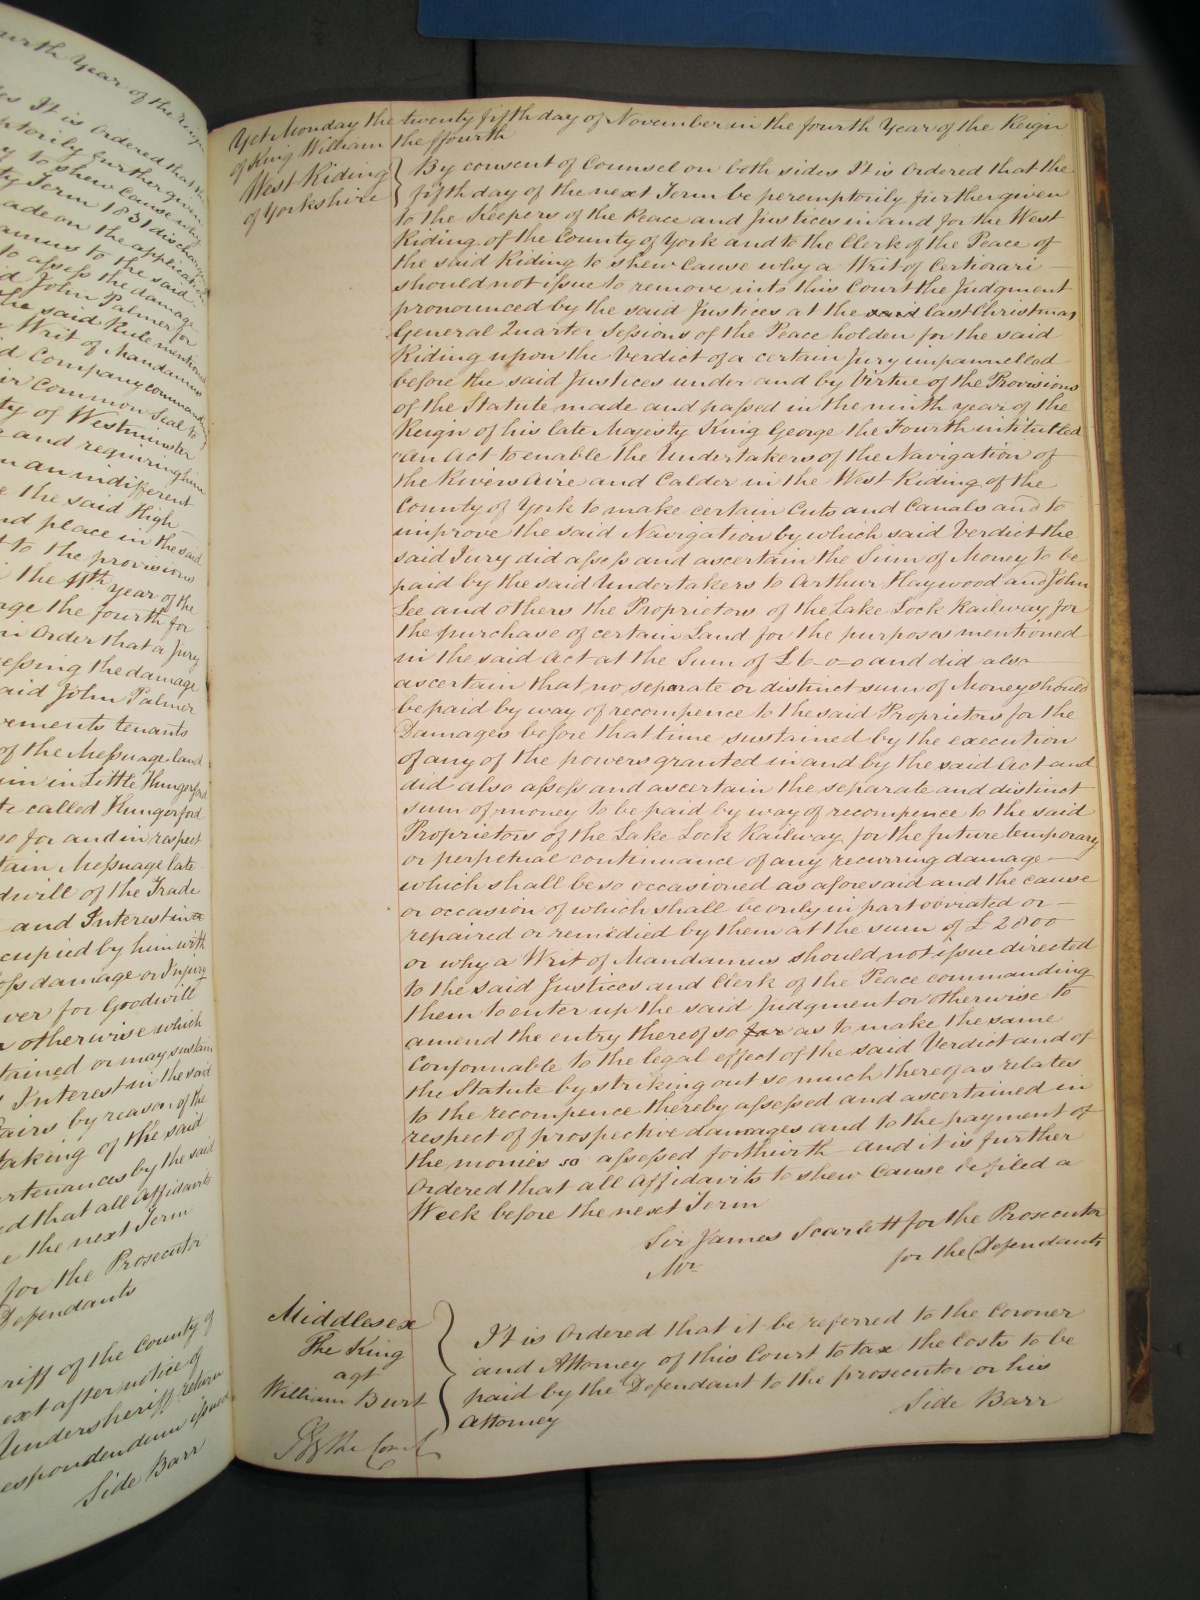 urth Year of the reign
es It is Ordered that the
ptorily further given
y to shew Cause why
ty Term 1831 discharged
ade on the application
amus to the said
to assess the damage
d John Palmer for
he said Rule mentioned
Writ of Mandamus
d Company commanding
ir Common Seal to
ty of Westminster
and requiring him
n an indifferent
e the said High
nd place in the said
t to the provisions
the 11th year of the
rge the fourth for
n Order that a Jury
essing the damage
aid John Palmer
rements tenants
of the Messuage land
in in Little Hungerford
te called Hungerford
so for and in respect
tain Messuage late
dwill of the Trade
and Interest in
cupied by him with
oss damage or Injury
ver for Goodwill
otherwise which
tained or may sustain
Interest in the said
airs by reason of the
taking of the said
rtenances by the said
ed that all Affidavits
e the next Term
for the Prosecutor
Defendants
riff of the County of
ext after notice of
Undersheriff return
espondendum issued
Side Barr
Yet Monday the twenty fifth day of November in the fourth Year of the Reign
of King William the ffourth
West Riding
of Yorkshire
By consent of Counsel on both sides It is Ordered that the
fifth day of the next Term be peremptorily further given
to the Keepers of the Peace and Justices in and for the West
Riding of the County of York and to the Clerk of the Peace of
the said Riding to shew Cause why a Writ of Certiorari
should not issue to remove into this Court the Judgment
pronounced by the said Justices at the said last Christmas
General Quarter Sessions of the Peace holden for the said
Riding upon the Verdict of a certain Jury impannelled
before the said Justices under and by Virtue of the Provisions
of the Statute made and passed in the ninth year of the
Reign of his late Majesty King George the Fourth intitutled
"An Act to enable the Undertakers of the Navigation of
the Rivers Aire and Calder in the West Riding of the
County of York to make certain Cuts and Canals and to
improve the said Navigation by which said Verdict the
said Jury did assess and ascertain the Sum of Money to be
paid by the said Undertakers to Arthur Haywood and John
Lee and others the Proprietors of the Lake Lock Railway for
the purchase of certain Land for the purposes mentioned
in the said Act at the Sum of £6-0-0 and did also
ascertain that no separate or distinct sum of Money should
be paid by way of recompence to the said Proprietors for the
Damages before that time sustained by the execution
of any of the powers granted in and by the said Act and
did also assess and ascertain the separate and distinct
sum of money to be paid by way of recompence to the said
Proprietors of the Lake Lock Railway for the future temporary
or perpetual continuance of any recurring damage
which shall be so occasioned as aforesaid and the cause
or occasion of which shall be only in part obviated or
repaired or remedied by them at the sum of £2800
or why a Writ of Mandamus should not issue directed
to the said Justices and Clerk of the Peace commanding
them to enter up the said Judgment or otherwise to
amend the entry thereof so far as to make the same
Conformable to the legal effect of the said Verdict and of
the Statute by striking out so much thereof as relates
to the recompence thereby assessed and ascertained in
respect of prospective damages and to the payment of
the monies so assessed forthwith and it is further
Ordered that all Affidavits to shew Cause be filed a
Week before the next Term
Sir James Scarlett for the Prosecutor
Mr for the Defendants
Middlesex
The King
agt
William Burt
It is Ordered that it be referred to the Coroner
and Attorney of this Court to tax the Costs to be
paid by the Defendant to the prosecutor or his
Attorney
Side Barr
By the Court